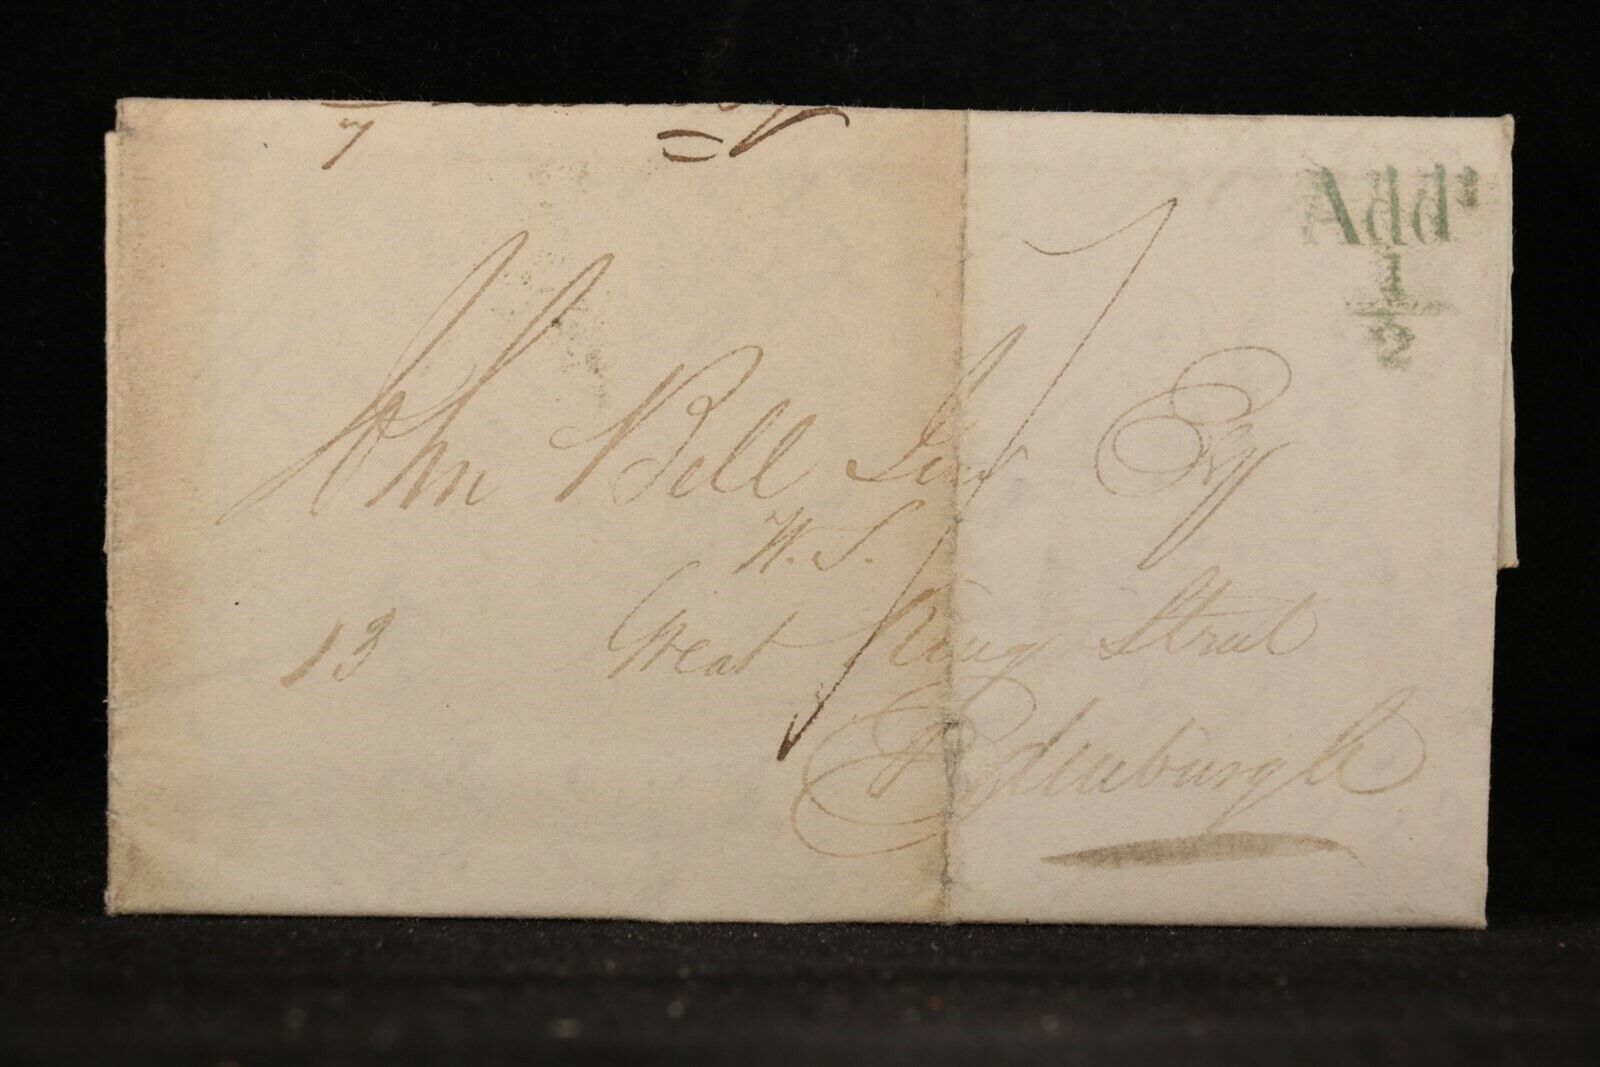 7
Addl
1
2
John Bell Junr Esq
W. S.
13 Great King Street
Edinburgh